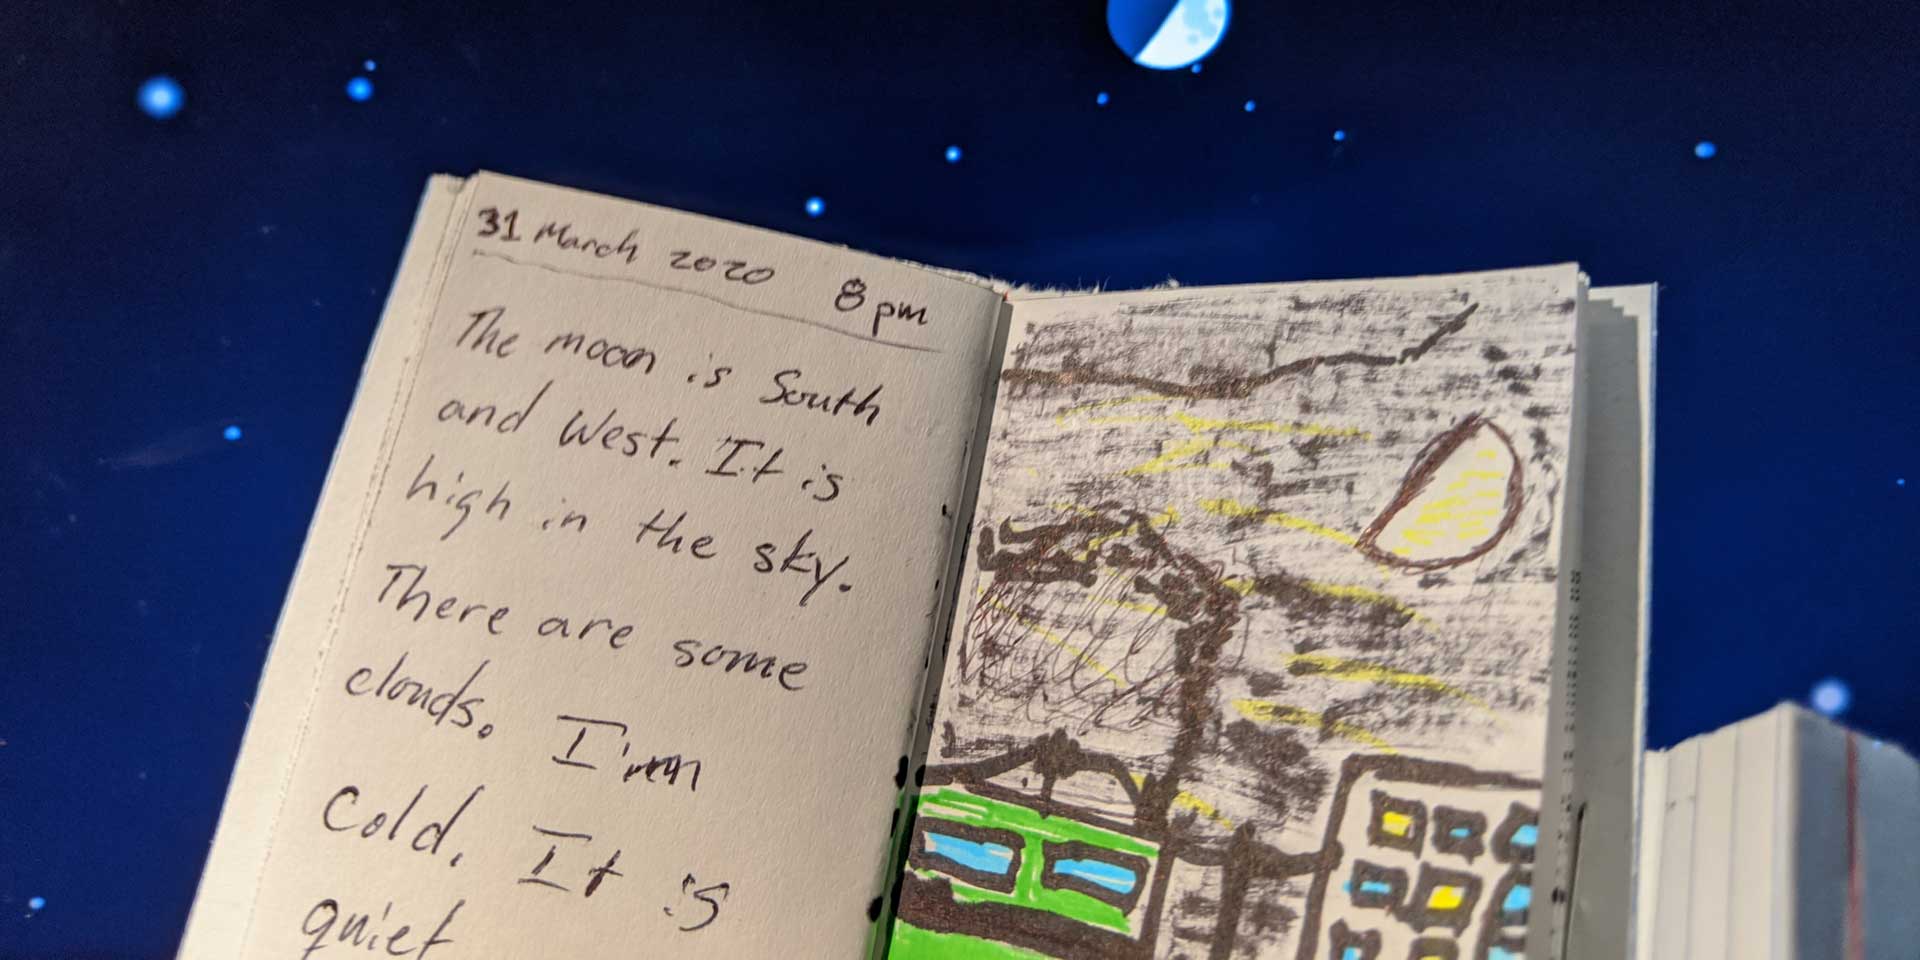 31 March 2020 8pm
The moon is South
and West. It is
high in the sky.
There are some
clouds. I'm
cold. It is
quiet